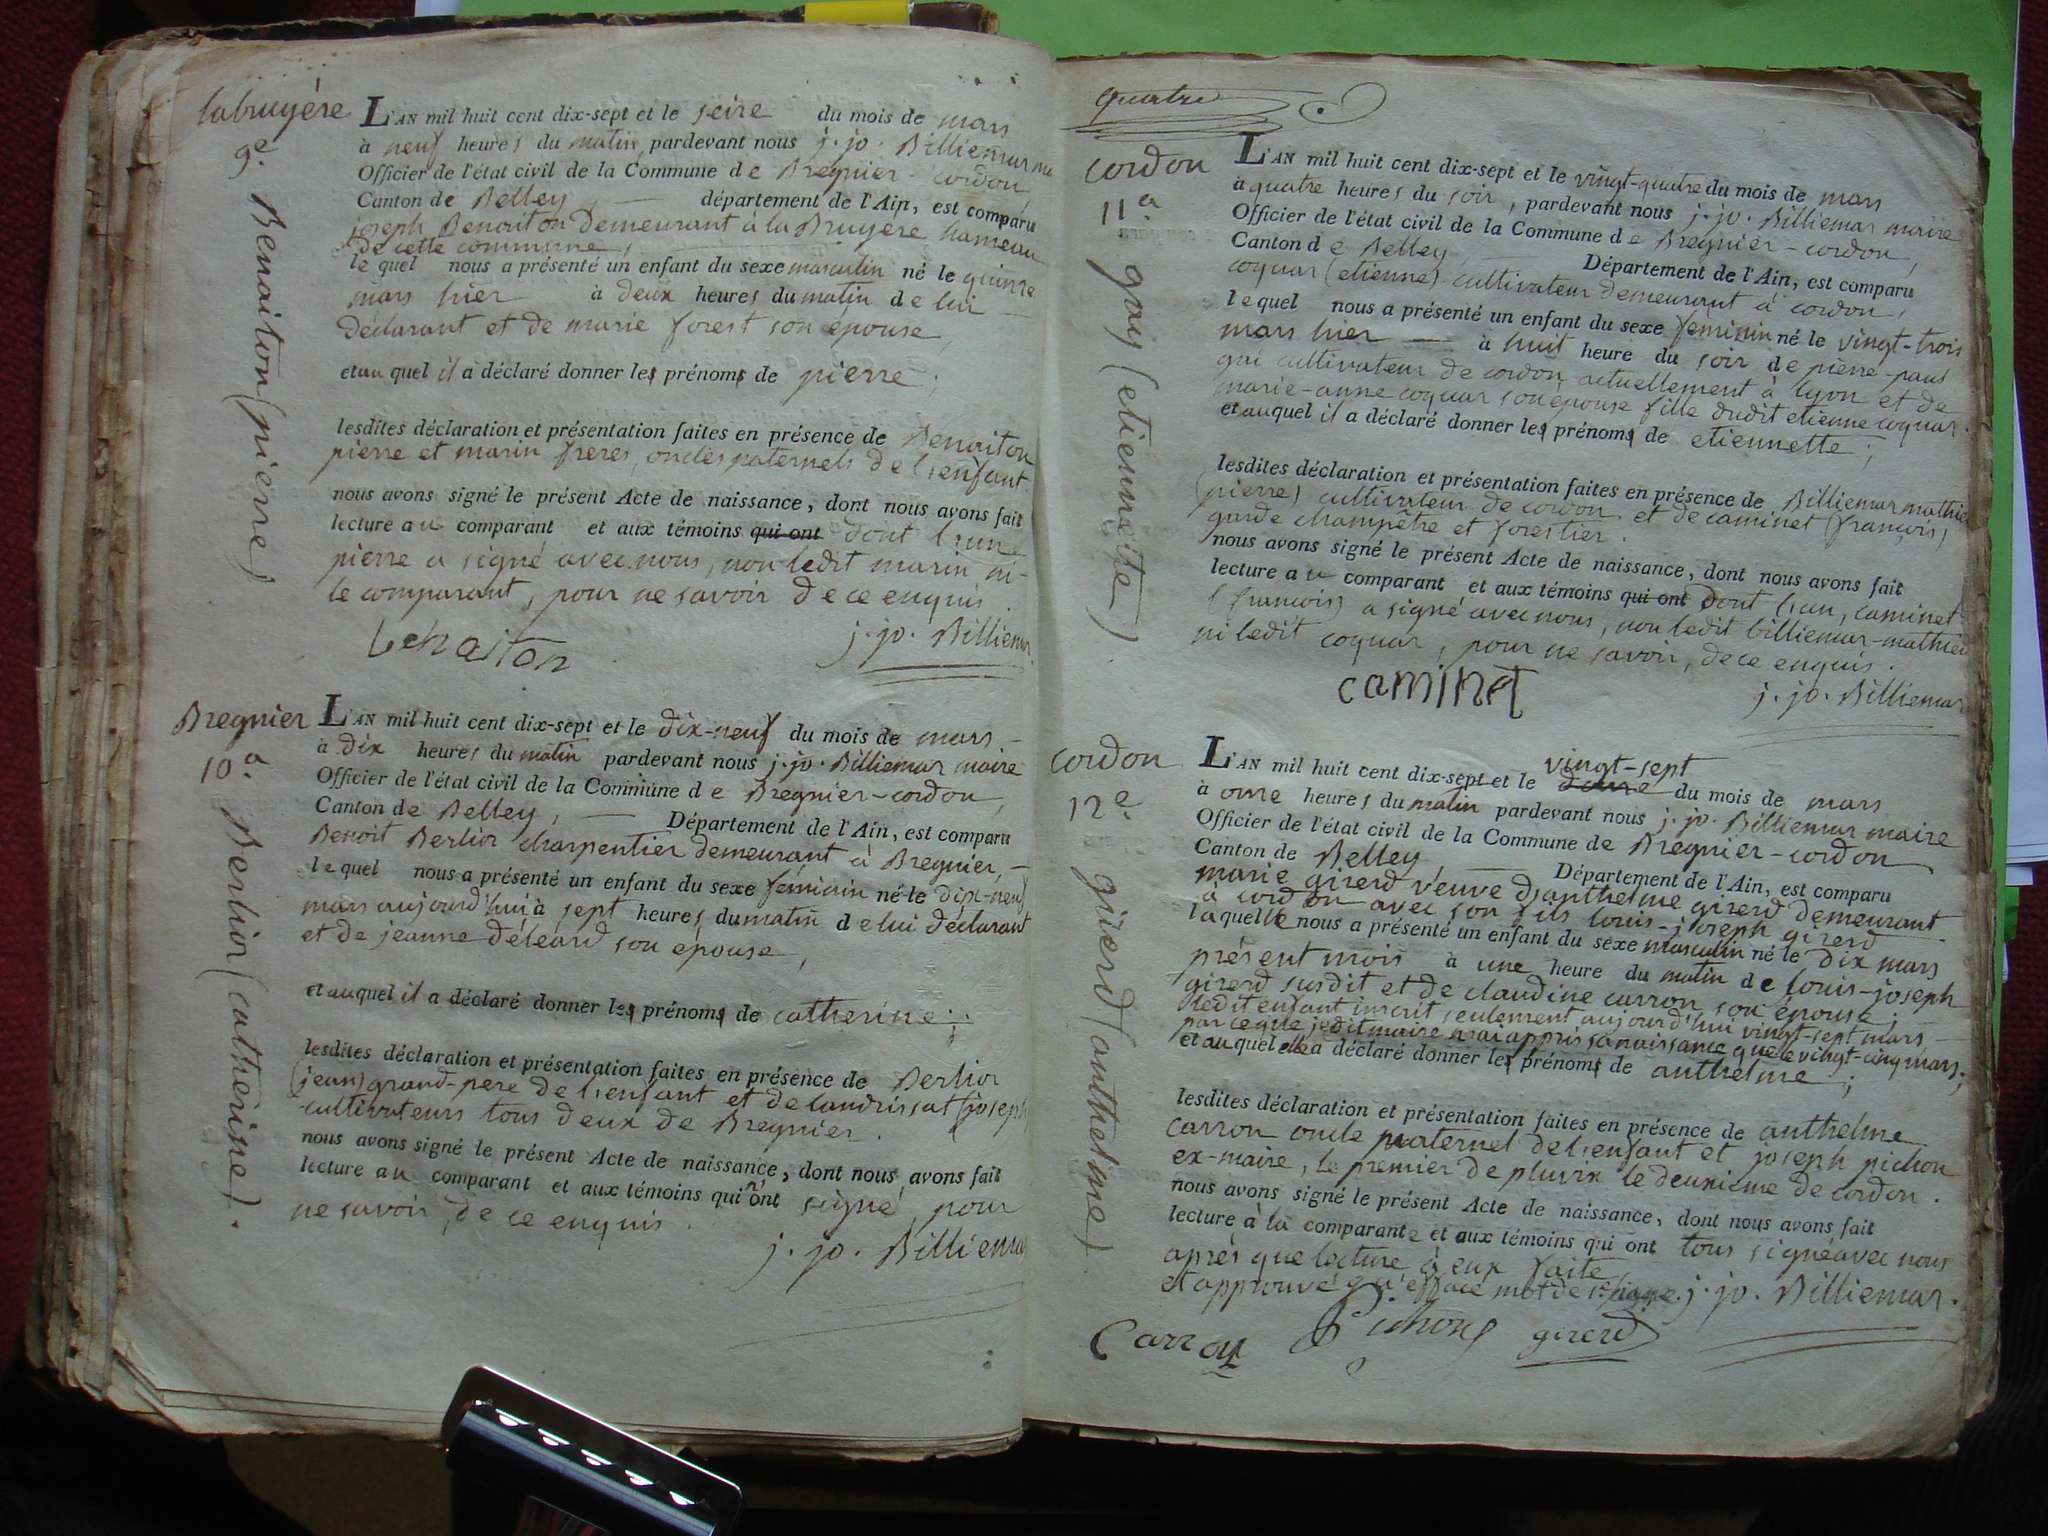 labruyère
9e. Benaiton (pierre)
L'AN mil huit cent dix-sept et le seize du mois de mars
à neuf heures du matin pardevant nous j. jo. Billiemar
Officier de l'état civil de la Commune de Bregnier-cordon,
Canton de Belley, département de l'Ain, est comparu
joseph Benoiton demeurant à la Bruyère hameau
de cette commune,
lequel nous a présenté un enfant du sexe masculin né le quinze
mars hier à deux heures du matin de lui
déclarant et de marie forest son epouse,
et auquel il a déclaré donner les prénoms de pierre;
lesdites déclaration et présentation faites en présence de Benoiton
pierre et marin frères, oncles paternels de l'enfant.
nous avons signé le présent Acte de naissance, dont nous avons fait
lecture au comparant et aux témoins qui ont dont l'un
pierre a signé avec nous, non ledit marin ni
le comparant, pour ne savoir de ce enquis.
benaiton j. jo. Billiemar
Bregnier
10a. Berlior (catherine).
L'AN mil huit cent dix-sept et le dix-neuf du mois de mars
à dix heures du matin pardevant nous j. jo. Billiemar maire
Officier de l'état civil de la Commune de Bregnier-cordon,
Canton de Belley, Département de l'Ain, est comparu
Benoit Berlior charpentier demeurant à Bregnier,
lequel nous a présenté un enfant du sexe féminin né le dix-neuf
mars aujourd'hui à sept heures du matin de lui déclarant
et de jeanne déléard son épouse,
et auquel il a déclaré donner les prénoms de catherine;
lesdites déclaration et présentation faites en présence de Berlior
(jean) grand-pere de l'enfant et de landrissat (joseph
cultivateurs tous deux de Bregnier.
nous avons signé le présent Acte de naissance, dont nous avons fait
lecture au comparant et aux témoins qui n'ont signé pour
ne savoir, de ce enquis.
j. jo. Billiemar
quatre
cordon
11a. gay (etiennette)
L'AN mil huit cent dix-sept et le vingt-quatre du mois de mars
à quatre heures du soir, pardevant nous j. jo. Billiemar maire
Officier de l'état civil de la Commune de Bregnier-cordon,
Canton de Belley, Département de l'Ain, est comparu
coquar (etienne) cultivateur demeurant à cordon,
lequel nous a présenté un enfant du sexe féminin né le vingt-trois
mars hier à huit heure du soir de pierre-paul
gai cultivateur de cordon actuellement à lyon et de
marie-anne coquar son epouse fille dudit etienne coquar.
et auquel il a déclaré donner les prénoms de etiennette;
lesdites déclaration et présentation faites en présence de Billiemar mathieu
(pierre) cultivateur de cordon et de caminet (françois)
garde champêtre et forestier.
nous avons signé le présent Acte de naissance, dont nous avons fait
lecture au comparant et aux témoins qui ont dont l'un, caminet
(françois) a signé avec nous, non ledit billiemar-mathieu
ni ledit coquar, pour ne savoir, de ce enquis.
caminet j. jo. Billiemar
cordon
12e. girerd (anthelme)
vingt-sept
L'AN mil huit cent dix-sept et le douze du mois de mars
à onze heures du matin pardevant nous j. jo. Billiemar maire
Officier de l'état civil de la Commune de Bregnier-cordon
Canton de Belley, Département de l'Ain, est comparu
marie girerd veuve d'anthelme girerd demeurant
à cordon avec son fils louis-joseph girerd
laquelle nous a présenté un enfant du sexe masculin né le dix mars
présent mois à une heure du matin de louis-joseph
girerd susdit et de claudine carron son épouse;
ledit enfant inscrit seulement aujourd'hui vingt-sept mars
parceque jedit maire n'ai appris sa naissance que le vingt-cinq mars;
et auquel elle a déclaré donner les prénoms de anthelme;
lesdites déclaration et présentation faites en présence de anthelme
carron oncle maternel de l'enfant et joseph pichon
ex-maire, le premier de pluvix le deuxieme de cordon.
nous avons signé le présent Acte de naissance, dont nous avons fait
lecture à la comparante et aux témoins qui ont tous signé avec nous
après que lecture à eux faite
et approuvé qu'effacé mot de 1e ligne. j. jo. Billiemar.
Carron Pichon girerd